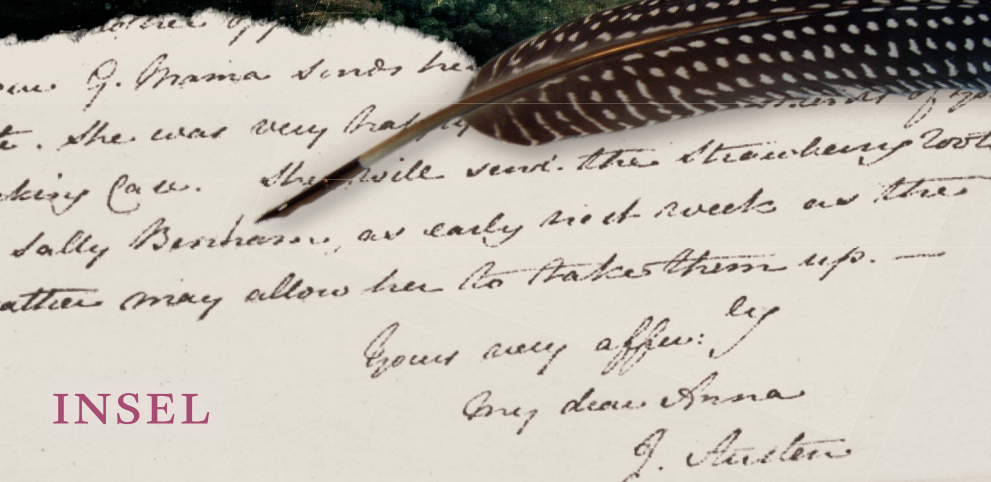 G. Mama sends he
She was very
king Care. She will send the Strawberry roots
Sally Benham, as early next week as the
eather may allow her to take them up. —
Yours very affec:ly
My dear Anna
J. Austen
INSEL